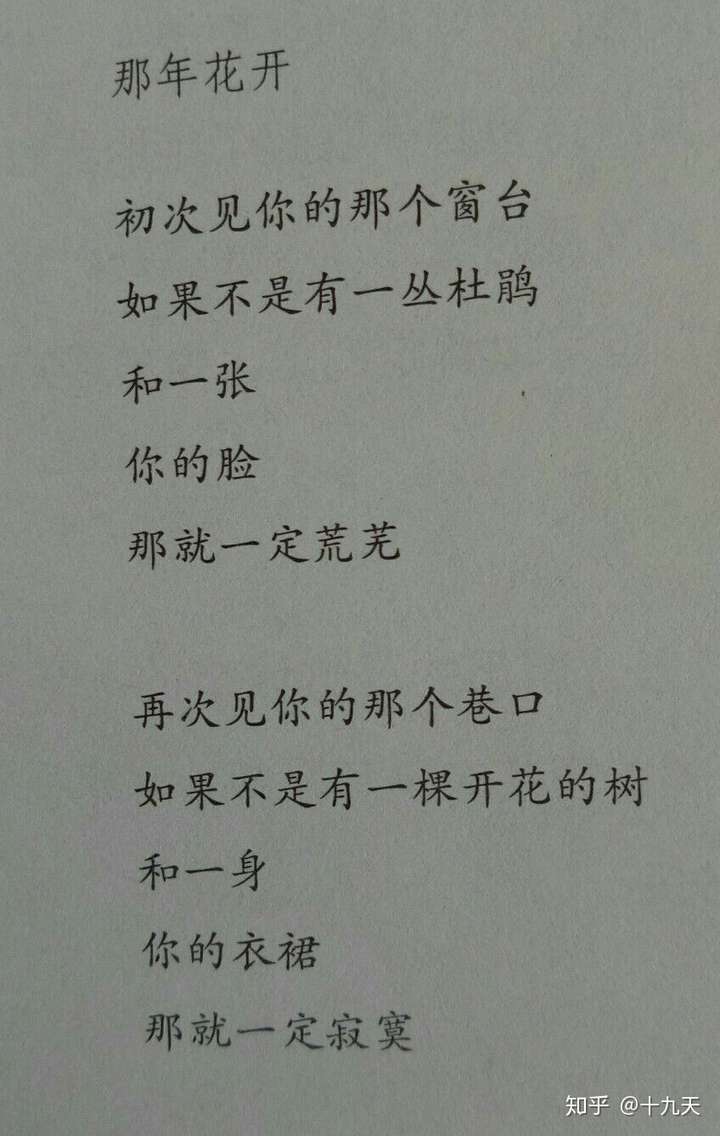 那年花开
初次见你的那个窗台
如果不是有一丛杜鹃
和一张
你的脸
那就一定荒芜
再次见你的那个巷口
如果不是有一棵开花的树
和一身
你的衣裙
那就一定寂寞
知乎 @十九天